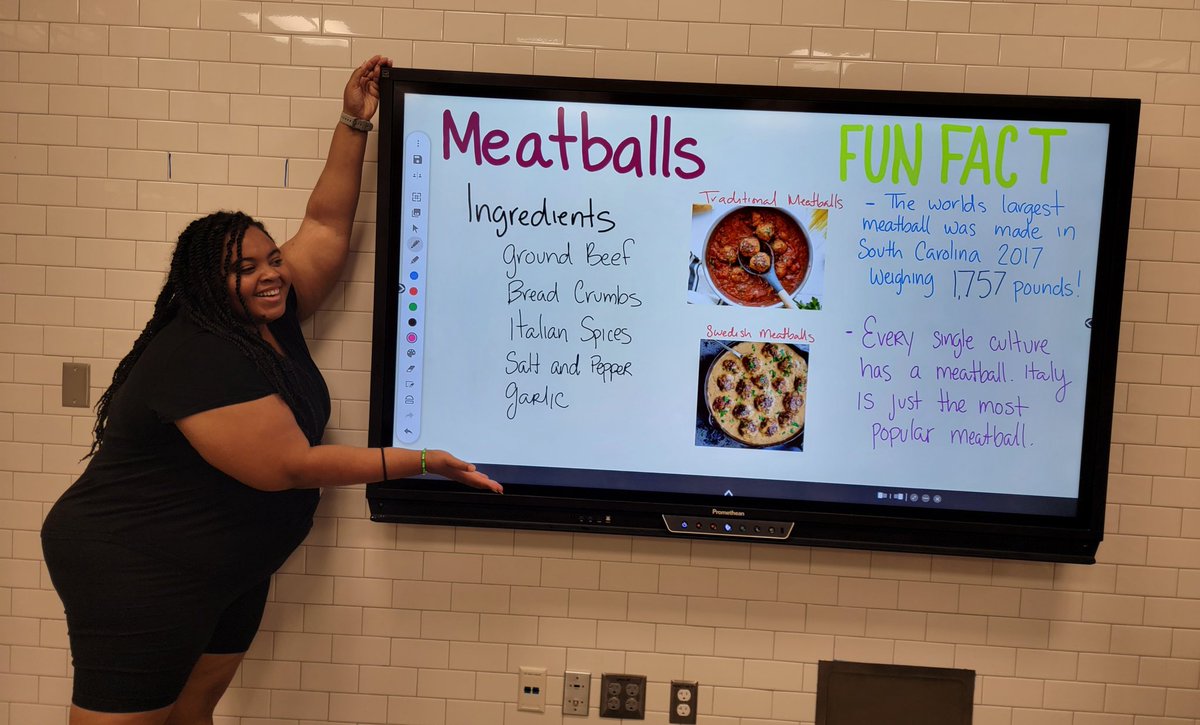 Meatballs
Ingredients
Ground Beef
Bread Crumbs
Italian Spices
Salt and Pepper
Garlic
Traditional Meatballs
Swedish Meatballs
FUN FACT
- The worlds largest
meatball was made in
South Carolina 2017
weighing 1,757 pounds!
- Every single culture
has a meatball. Italy
is just the most
popular meatball.
Promethean